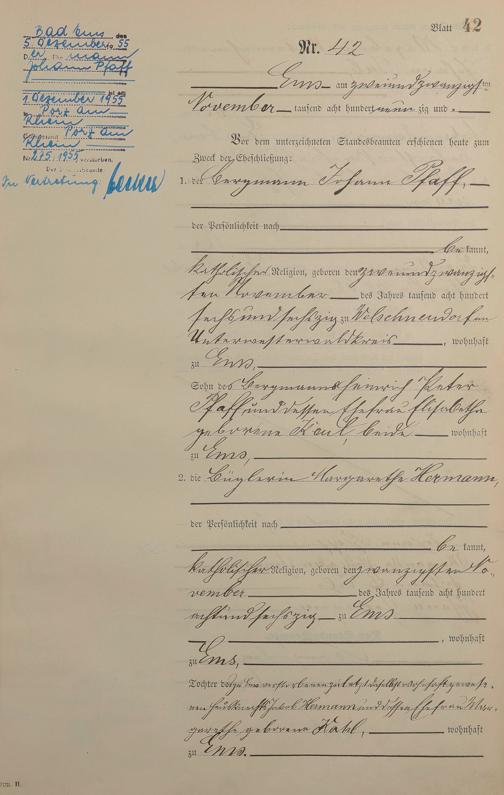 Blatt 42
Bad Ems, den
5. Dezember 1955
Der Ehemann
Johann Pfaff
ist am
1. Dezember 1955
Porz am
Rhein
Porz am
Rhein
Nr. 215/1955 verstorben.
Der Standesbeamte
In Vertretung
Nr. 42
Ems am zweiundzwanzigsten
November tausend acht hundert neunzig und
Vor dem unterzeichneten Standesbeamten erschienen heute zum
Zweck der Eheschließung:
1. der Bergmann Johann Pfaff,
der Persönlichkeit nach
be kannt,
katholischer Religion, geboren den zweiundzwanzigs-
ten November des Jahres tausend acht hundert
sechsundsechszig zu Welschneudorf im
Unterwesterwaldkreis, wohnhaft
zu Ems,
Sohn des Bergmanns Heinrich Peter
Pfaff und dessen Ehefrau Elisabetha
geborene Kaul, beide wohnhaft
zu Ems,
2. die Büglerin Margarethe Hermann,
der Persönlichkeit nach
be kannt,
katholischer Religion, geboren den zwanzigsten No-
vember des Jahres tausend acht hundert
achtundsechszig zu Ems
, wohnhaft
zu Ems,
Tochter des zu Ems verstorbenen zuletzt daselbst wohnhaft gewese-
nen Jakob Hermann und dessen Ehefrau Mar-
garethe geborene Kahl, wohnhaft
zu Ems.